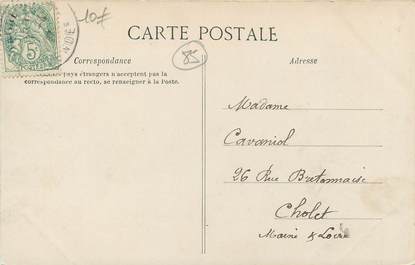 10f
CARTE POSTALE
85
Correspondance
Adresse
pays étrangers n'acceptent pas la
correspondance au recto, se renseigner à la Poste.
5
Madame
Cavaniol
26 Rue Bretonnaise
Cholet
Maine & Loire